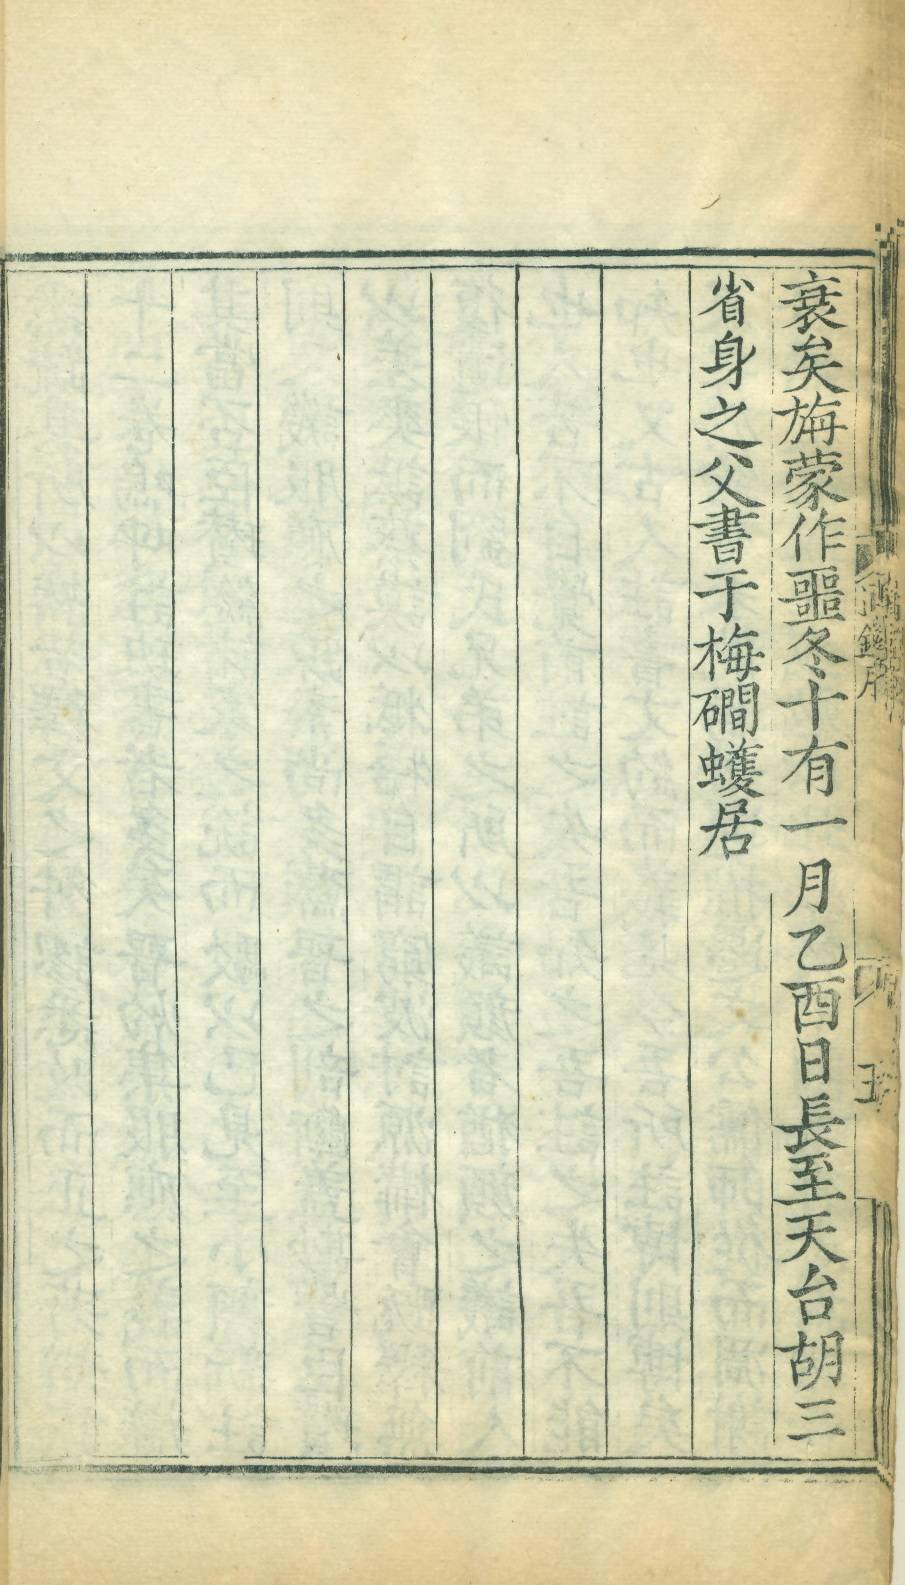 衰矣旃蒙作噩冬十有一月乙酉日長至天台胡三
省身之父書于梅磵蠖居